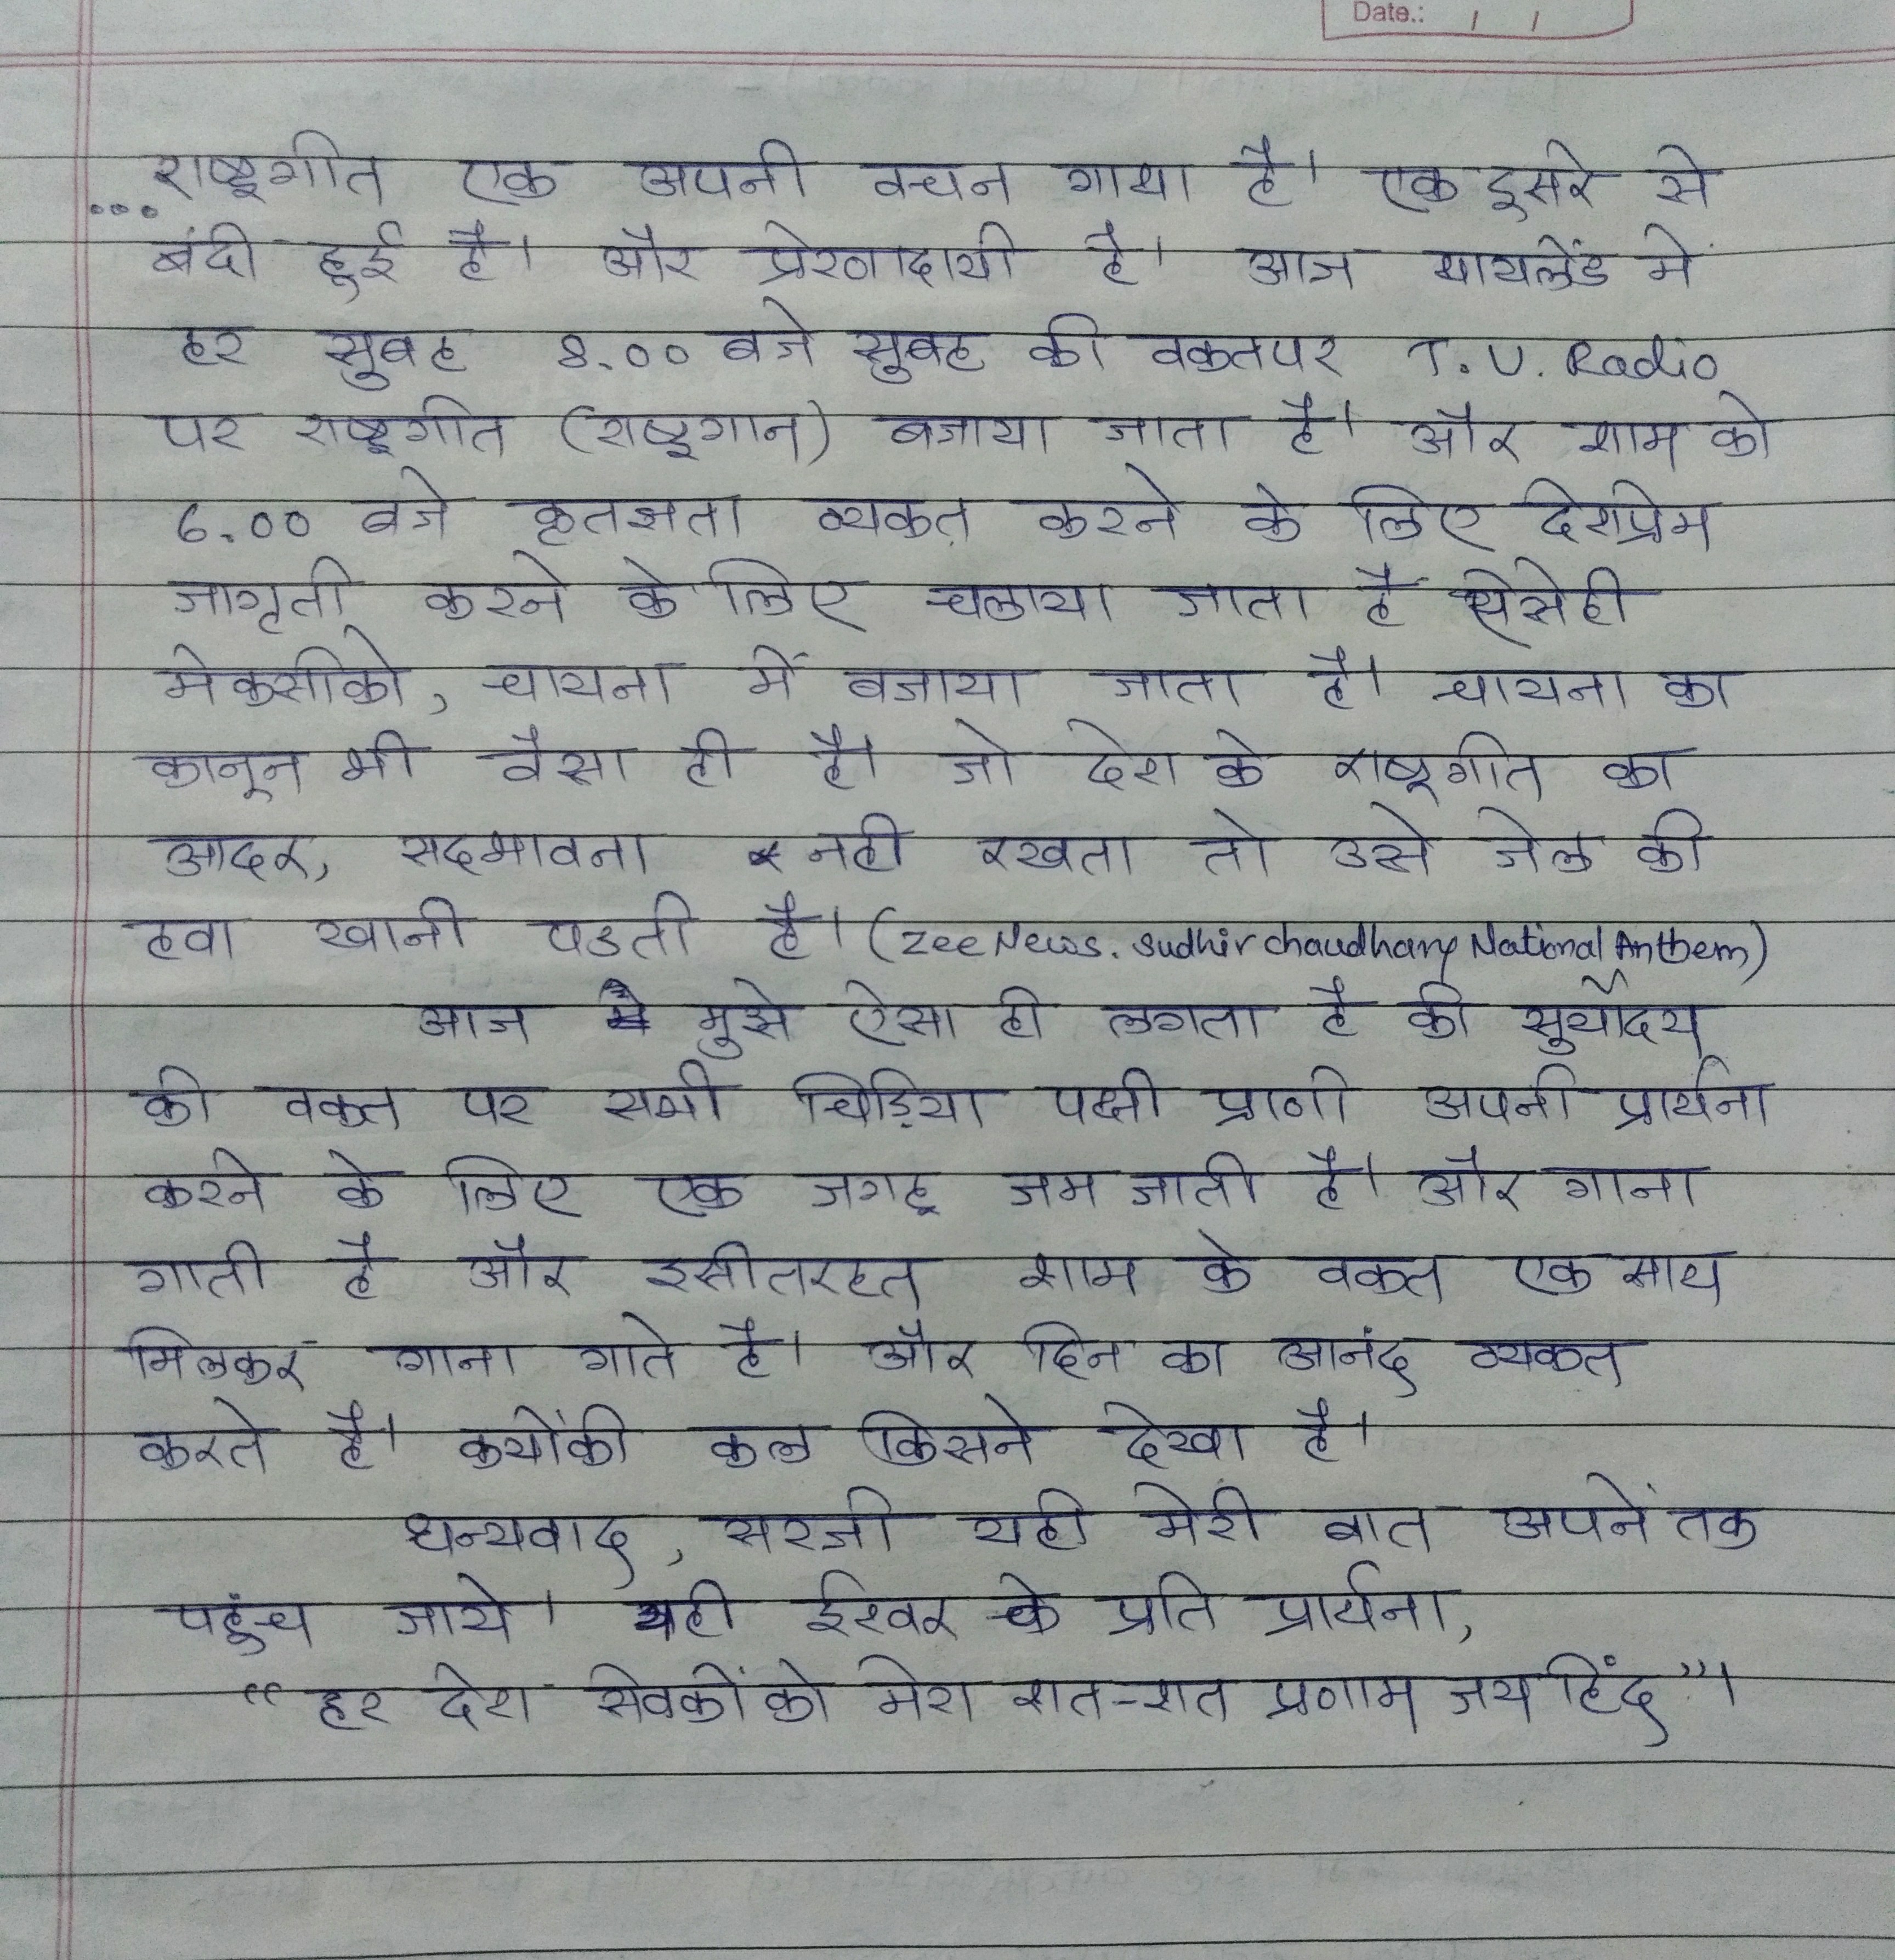 Date.: / /
...राष्ट्रगीत एक अपनी वचन गाथा है। एक दुसरे से
बंदी हुई है। और प्रेरणादायी है। आज थायलेंड मे
हर सुबह 8.00 बजे सुबह की वक्तपर T.V. Radio
पर राष्ट्रगीत (राष्ट्रगान) बजाया जाता है। और शाम को
6.00 बजे कृतज्ञता व्यक्त करने के लिए देशप्रेम
जागृती करने के लिए चलाया जाता है ऐसेही
मेक्सीको, चायना में बजाया जाता है। चायना का
कानून भी वैसा ही है। जो देश के राष्ट्रगीत का
आदर, सदभावना नही रखता तो उसे जेल की
हवा खानी पडती है। (Zee News. Sudhir chaudhary National Anthem)
आज मुझे ऐसा ही लगता है की सुर्योदय
की वक्त पर सभी चिड़िया पक्षी प्राणी अपनी प्रार्थना
करने के लिए एक जगह जम जाती है। और गाना
गाती है और इसीतरहत शाम के वक्त एक साथ
मिलकर गाना गाते है। और दिन का आनंद व्यक्त
करते है। क्योंकी कल किसने देखा है।
धन्यवाद, सरजी यही मेरी बात अपनें तक
पहुंच जाये। यही ईश्वर के प्रति प्रार्थना,
“हर देश सेवकों को मेरा शत-शत प्रणाम जय हिंद”।